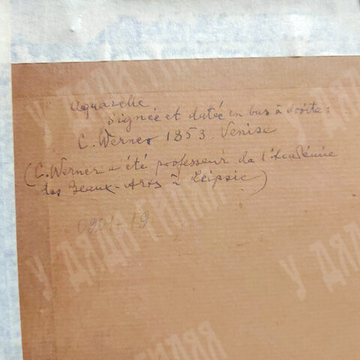 aquarelle
signée et datée en bas à droite :
C. Werner 1853 Venise
(C. Werner a été professeur de l'Académie
des Beaux-Arts à Leipsic)
У ДЯДИ